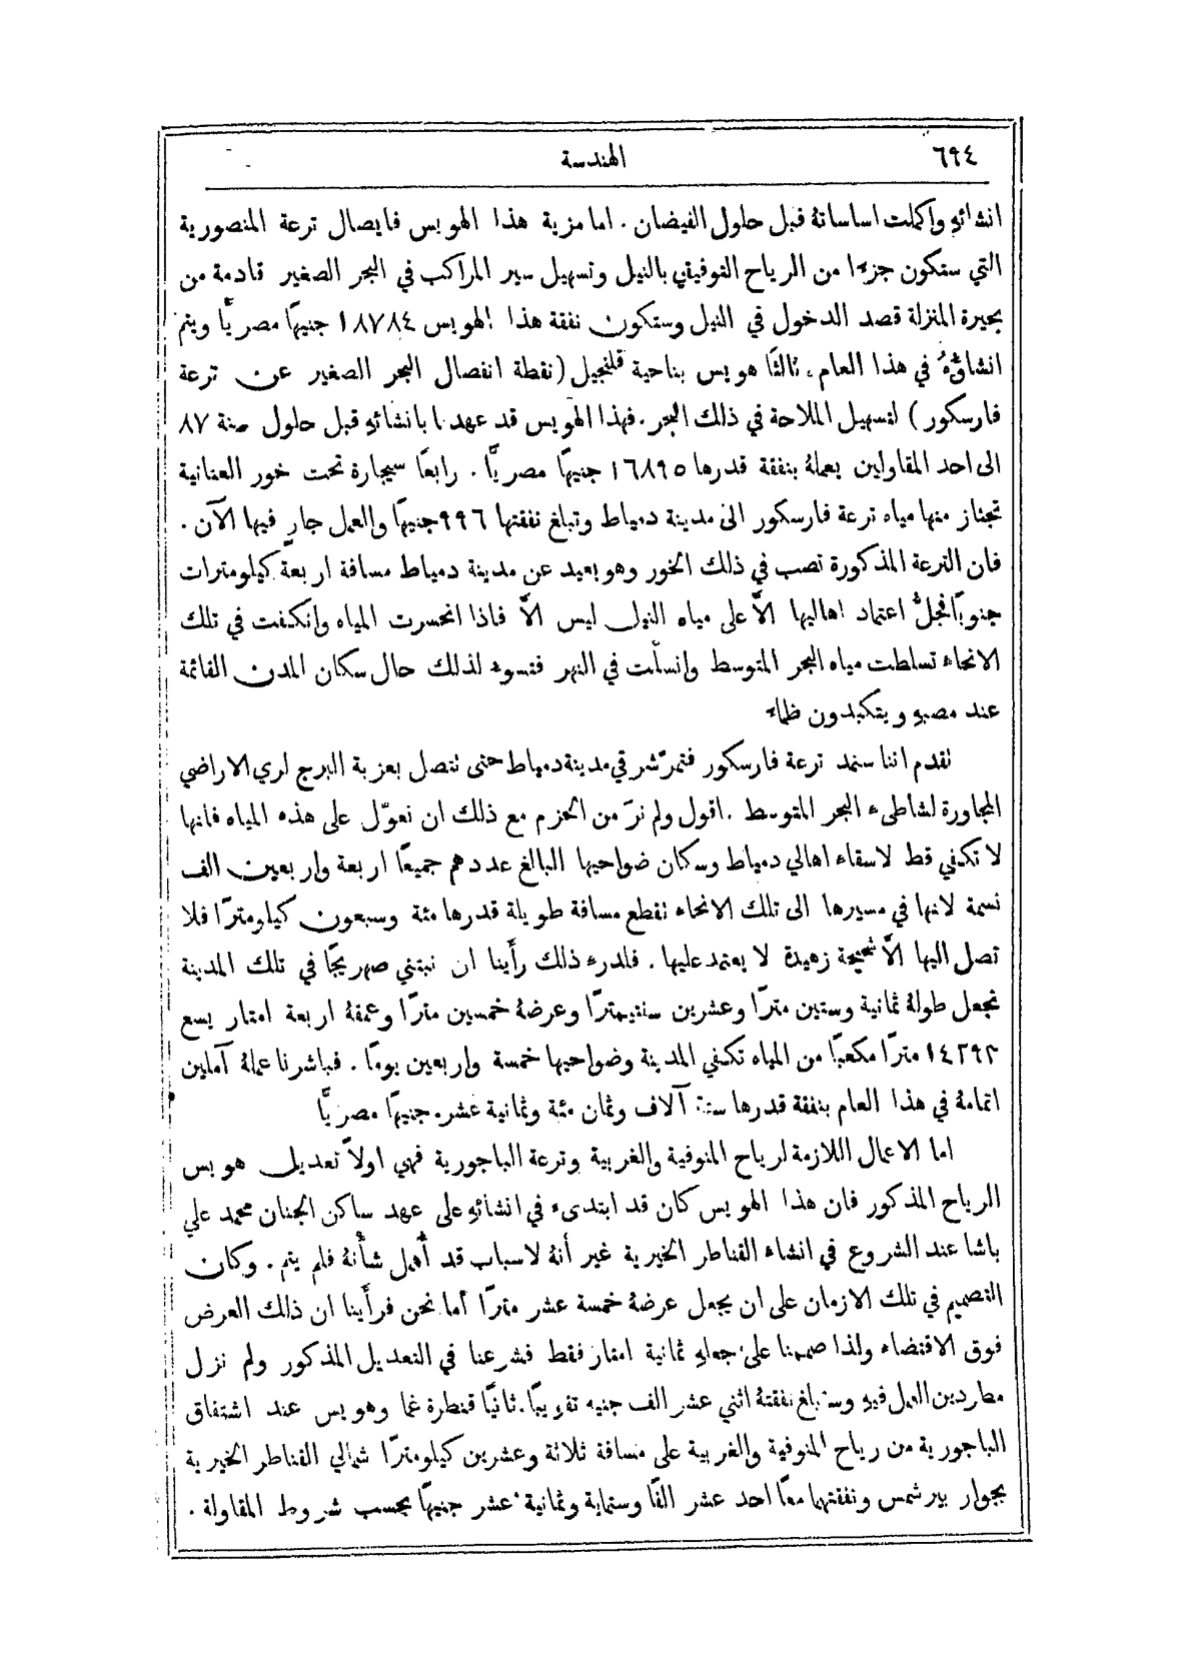 ٦٩٤
الهندسة
انشائهِ واكملت اساساتهُ قبل حلول الفيضان . اما مزية هذا الهويس فايصال ترعة المنصورية
التي ستكون جزءا من الرياح التوفيقي بالنيل وتسهيل سير المراكب في البحر الصغير قادمة من
بحيرة المنزلة قصد الدخول في النيل وستكون نفقة هذا الهويس ١٨٧٨٤ جنيهًا مصريًّا ويتم
انشاؤُهُ في هذا العام . ثالثًا هويس بناحية قلنجيل (نقطة انفصال البحر الصغير عن ترعة
فارسكور) لتسهيل الملاحة في ذلك البحر . فهذا الهويس قد عهدنا بانشائهِ قبل حلول سنة ٨٧
الى احد المقاولين بعملهُ بنفقة قدرها ١٦٨٩٥ جنيهًا مصريًّا . رابعًا سيجارة تحت خور العنانية
تجتاز منها مياه ترعة فارسكور الى مدينة دمياط وتبلغ نفقتها ٩٩٦ جنيهًا والعمل جارٍ فيها الآن .
فان الترعة المذكورة تصب في ذلك الخور وهو بعيد عن مدينة دمياط مسافة اربعة كيلومترات
جنوبًا فجلُّ اعتماد اهاليها الاَّ على مياه النيل ليس الاَّ فاذا انحسرت المياه وانكفت في تلك
الانحاء تسلطت مياه البحر المتوسط وانسلّت في النهر فتسوء لذلك حال سكان المدن القائمة
عند مصبهِ ويتكبدون ظماء
تقدم اننا سنمد ترعة فارسكور فتمرّ شرقي مدينة دمياط حتى تتصل بعزبة البرج لري الاراضي
المجاورة لشاطىء البحر المتوسط . اقول ولم نرَ من الحزم مع ذلك ان نعوّل على هذه المياه فانها
لا تكفي قط لاسقاء اهالي دمياط وسكان ضواحيها البالغ عددهم جميعًا اربعة واربعين الف
نسمة لانها في مسيرها الى تلك الانحاء تقطع مسافة طويلة قدرها مئة وسبعون كيلومترًا فلا
تصل اليها الاَّ شحيحة زهيدة لا يعتمد عليها . فلدرء ذلك رأَينا ان نبتني صهريجًا في تلك المدينة
نجعل طولهُ ثمانية وستين مترًا وعشرين سنتيمترًا وعرضهُ خمسين مترًا وعمقهُ اربعة امتار يسع
١٤٢٩٢ مترًا مكعبًا من المياه تكفي المدينة وضواحيها خمسة واربعين يومًا . فباشرنا عملهُ آملين
اتمامهُ في هذا العام بنفقة قدرها ستة آلاف وثمان مئة وثمانية عشر جنيهًا مصريًّا
اما الاعمال اللازمة لرياح المنوفية والغربية وترعة الباجورية فهي اولاً تعديل هويس
الرياح المذكور فان هذا الهويس كان قد ابتدىء في انشائهِ على عهد ساكن الجنان محمد علي
باشا عند الشروع في انشاء القناطر الخيرية غير أنهُ لاسباب قد أُهمل شأنهُ فلم يتم . وكان
التصميم في تلك الازمان على ان يجعل عرضهُ خمسة عشر مترًا أما نحن فرأَينا ان ذلك العرض
فوق الاقتضاء ولذا صممنا على جعلهِ ثمانية امتار فقط فشرعنا في التعديل المذكور ولم نزل
مطاردين العمل فيهِ وستبلغ نفقتهُ اثني عشر الف جنيه تقريبًا . ثانيًا قنطرة غما وهويس عند اشتقاق
الباجورية من رياح المنوفية والغربية على مسافة ثلاثة وعشرين كيلومترًا شمالي القناطر الخيرية
بجوار بير شمس ونفقتهما معًا احد عشر الفًا وستماية وثمانية عشر جنيهًا بحسب شروط المقاولة .